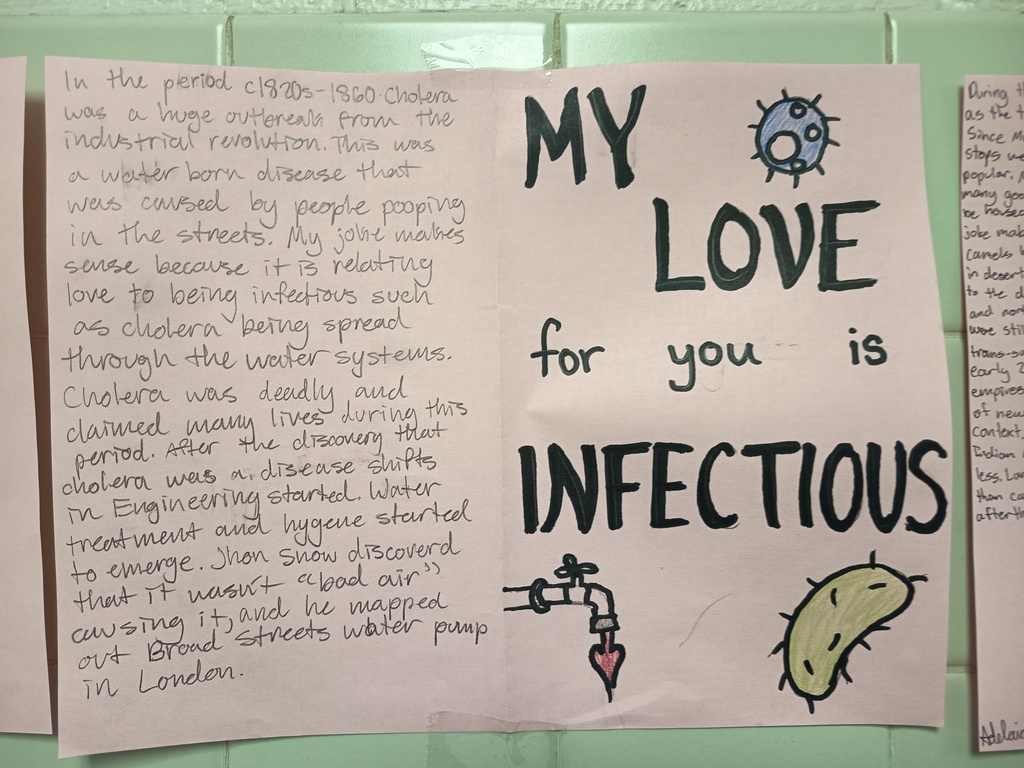 In the period c1820s-1860 Cholera
was a huge outbreak from the
industrial revolution. This was
a water born disease that
was caused by people pooping
in the streets. My joke makes
sense because it is relating
love to being infectious such
as cholera being spread
through the water systems.
Cholera was deadly and
claimed many lives during this
period. After the discovery that
cholera was a disease shifts
in Engineering started. Water
treatment and hygene started
to emerge. Jhon Snow discoverd
that it wasn't "bad air"
causing it, and he mapped
out Broad streets water pump
in London.
MY
LOVE
for you is
INFECTIOUS
During th
as the t
Since M
stops we
popular.
many goo
be housed
joke mak
camels
in desert
to the d
and nor
were stil
trans-s
early 2
empires
of new
context,
Indian
less. La
than ca
after th
Adelai